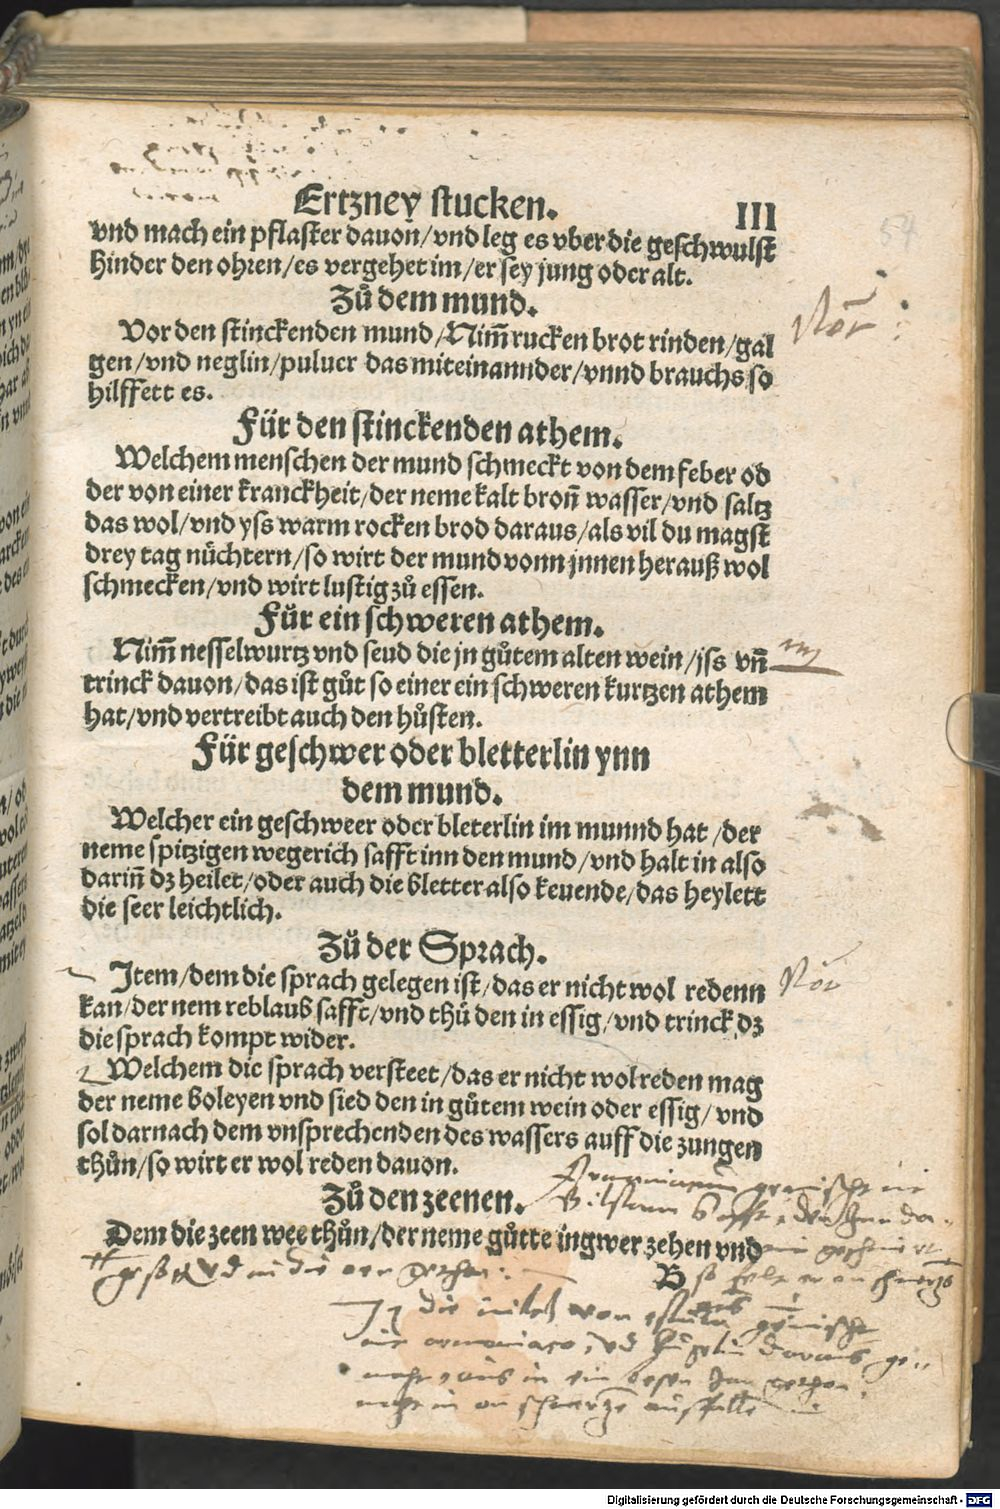 Ertzney stucken. III
54
vnd mach ein pflaster dauoñ/vnd leg es vber die geschwulst
hinder den ohren/es vergehet im/er sey jung oder alt.
Zů dem mund.
Vor den stinckenden mund/Nim̃ rucken brot rinden/gal
gen/vnd neglin/puluer das miteinannder/vnnd brauchs so
hilffett es.
Für den stinckenden athem.
Welchem menschen der mund schmeckt von dem feber od
der von einer kranckheit/der neme kalt broñ wasser/vnd saltz
das wol/vnd yss warm rocken brod daraus/als vil du magst
drey tag nůchtern/so wirt der mund vonn jnnen herauß wol
schmecken/vnd wirt lustig zů essen.
Für ein schweren athem.
Nim̃ nesselwurtz vnd seud die jn gůtem alten wein/jss vñ
trinck dauon/das ist gůt so einer ein schweren kurtzen athem
hat/vnd vertreibt auch den hůsten.
Für geschwer oder bletterlin ynn
dem mund.
Welcher ein geschweer oder bleterlin im munnd hat/der
neme spitzigen wegerich safft inn den mund/vnd halt in also
dariñ dz heilet/oder auch die bletter also keuende/das heylett
die seer leichtlich.
Zů der Sprach.
Item/dem die sprach gelegen ist/das er nicht wol redenn
kan/der nem reblaub safft/vnd thů den in essig/vnd trinck dz
die sprach kompt wider.
Welchem die sprach versteet/das er nicht wol reden mag
der neme boleyen vnd sied den in gůtem wein oder essig/vnd
sol darnach dem vnsprechenden des wassers auff die zungen
thůn/so wirt er wol reden dauon.
Zů den zeenen.
Dem die zeen wee thůn/der neme gůtte ingwer zehen vnd
B
Digitalisierung gefördert durch die Deutsche Forschungsgemeinschaft - DFG